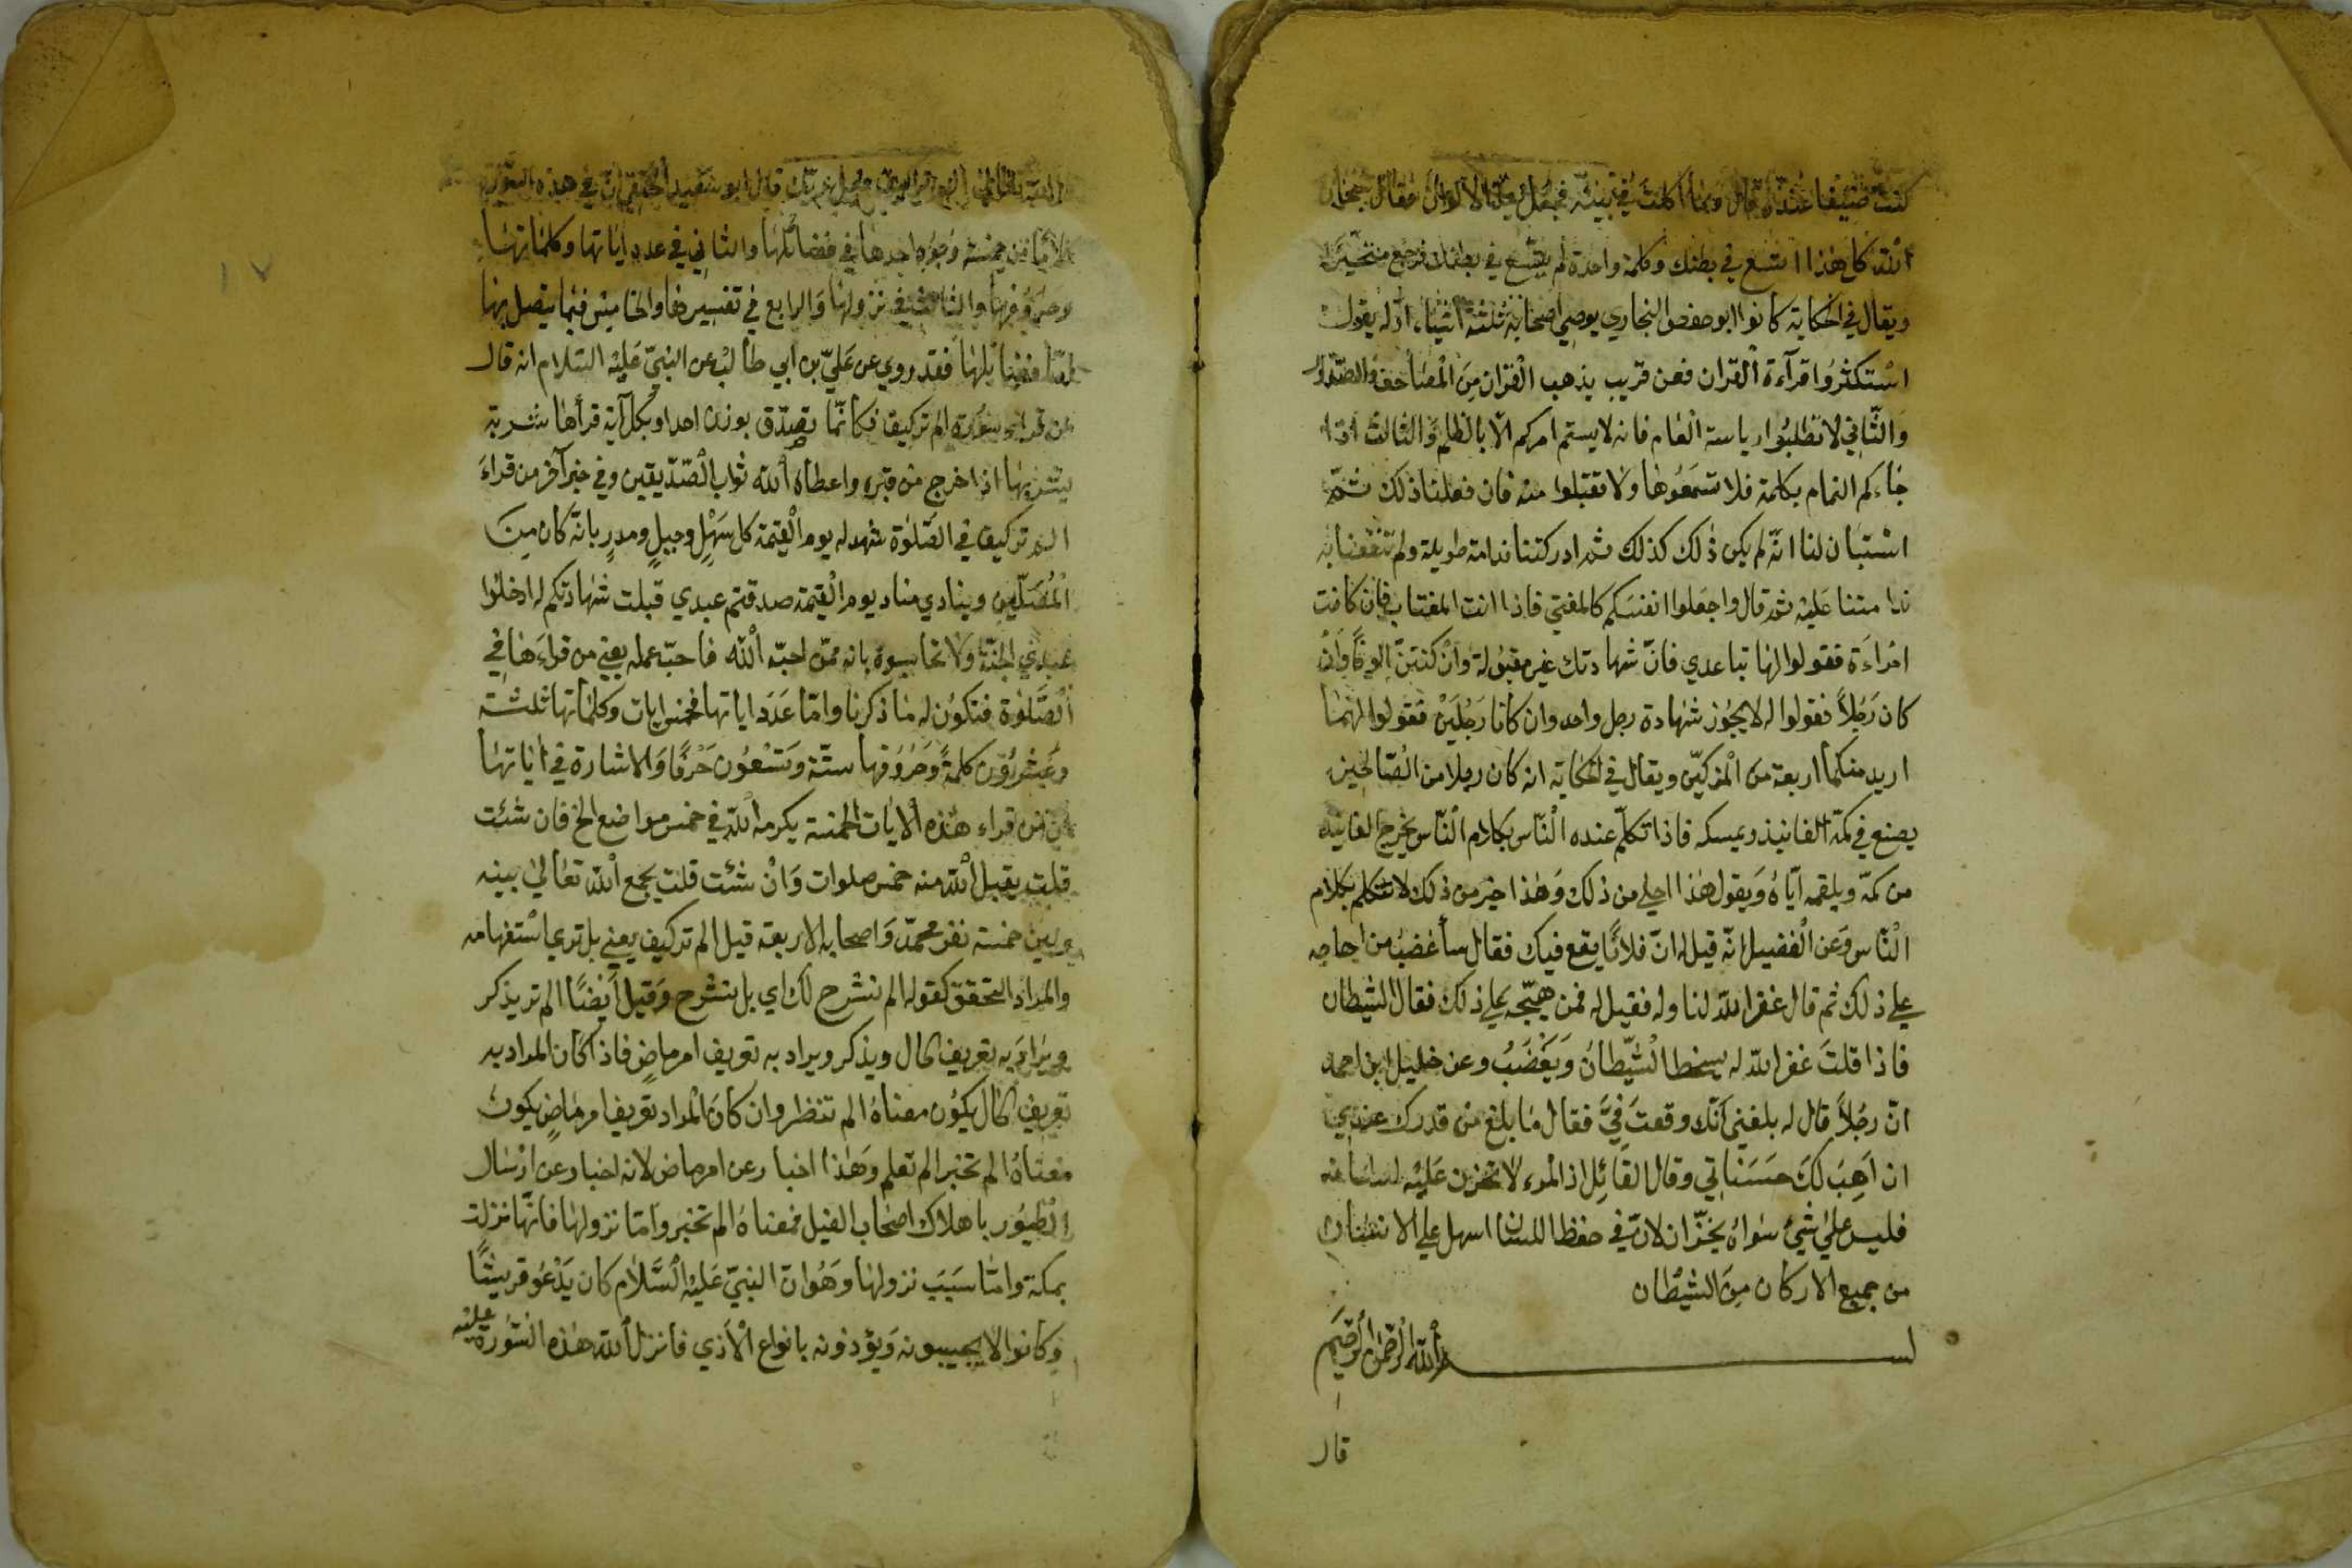 كنت ضيفا عنده قال وما اكلت في بيته فقال
الله كل هذا اتسع في بطنك وكلمة واحدة لم يتسع في بطنك فرجع متحيرا
ويقال في الحكاية كانوا ابو حفص البخاري يوصي اصحابه ثلثة اشياء اوله يقول
استكثروا قرآءة القران فعن قريب يذهب القران من المصاحف والصدور
والثاني لا تطلبوا رياسة العام فانه لا يستم امركم الا بالظلم والثالث اذا
جاءكم النمام بكلمة فلا تسمعوها ولا تقبلوا منه فان فعلنا ذلك ثم
استبان لنا انه لم يكن ذلك كذلك ثم ادركتنا ندامة طويلة ولم تنفعنا به
ندامتنا عليه ثم قال واجعلوا انفسكم كالمفتي فاذا انت المغتاب فان كانت
امراءة فقولوا لها تباعدي فان شهادتك غير مقبولة وان كنتن الوفا وان
كان رجلا فقولوا له لا يجوز شهادة رجل واحد وان كانا رجلين فقولوا لهما
اريد منكما اربعة من المزكين ويقال في الحكاية انه كان رجلا من الصالحين
يصنع في كمه الفانيذ ويمسكه فاذا تكلم عنده الناس بكلام الناس يخرج الفانيذ
من كمه ويلقمه اياه ويقول هذا احلي من ذلك وهذا خير من ذلك لا تتكلم بكلام
الناس وعن الفضيل انه قيل له ان فلانا يقع فيك فقال سأغضب من
علي ذلك ثم قال غفر الله لنا وله فقيل له فمن هيجه علي ذلك فقال الشيطان
فاذا قلت غفر الله له يسخط الشيطان ويغضب وعن خليل ابن احمد
ان رجلا قال له بلغني انك وقعت في فقال ما بلغ من قدرك عندي
ان اهب لك حسناتي وقال القائل اذ المرء لا تخزن عليه لسانه
فليس علي شيئ سواه بخزان لان في حفظ اللسان اسهل علي الانسان
من جميع الاركان من الشيطان
بسم الله الرحمن الرحيم
قال
قال ابو سعيد الحنفي ان في هذه السورة
كلاما من خمسة وجوه احدها في فضائلها والثاني في عدد اياتها وكلماتها
وحروفها والثالث في نزولها والرابع في تفسيرها والخامس فيما يتصل بها
اما فضايلها فقد روي عن علي بن ابي طالب عن النبي عليه السلام انه قال
من قراء سورة الم تركيف فكانما تصدق بوزن احد وبكل آية قرأها شربة
يشربها اذا خرج من قبره واعطاه الله ثواب الصديقين وفي خبر آخر من قراء
الم تركيف في الصلوة شهد له يوم القيمة كل سهل وجبل ومدر بانه كان من
المصلين وينادي مناد يوم القيمة صدقتم عبدي قبلت شهادتكم له ادخلوا
عبدي الجنة ولا تحاسبوه بانه ممن احبه الله فاحب عمله يعني من قراءها في
الصلوة فتكون له ما ذكرنا واما عدد اياتها فخمس ايات وكلماتها ثلثة
وعشرون كلمة وحروفها ستة وتسعون حرفا والاشارة في اياتها
من قراء هذه الايات الخمسة يكرمه الله في خمس مواضع الخ فان شئت
قلت يقبل الله منه خمس صلوات وان شئت قلت يجمع الله تعالي بينه
وبين خمسة نفر محمد واصحابه الاربعة قيل الم تركيف يعني بل تري استفهامه
والمراد التحقق كقوله الم نشرح لك اي بل نشرح وقيل ايضا الم تر يذكر
ويراد به تعريف الحال ويذكر ويراد به تعريف امر ماض فاذا كان المراد به
تعريف الحال يكون معناه الم تنظر وان كان المراد تعريف امر ماض يكون
معناه الم تخبر الم تعلم وهذا اخبار عن امر ماض لانه اخبار عن ارسال
الطيور باهلاك اصحاب الفيل فمعناه الم تخبر واما نزولها فانها نزلت
بمكة واما سبب نزولها وهو ان النبي عليه السلام كان يدعو قريشا
وكانوا لا يجيبونه ويؤذونه بانواع الاذي فانزل الله هذه السورة عليه